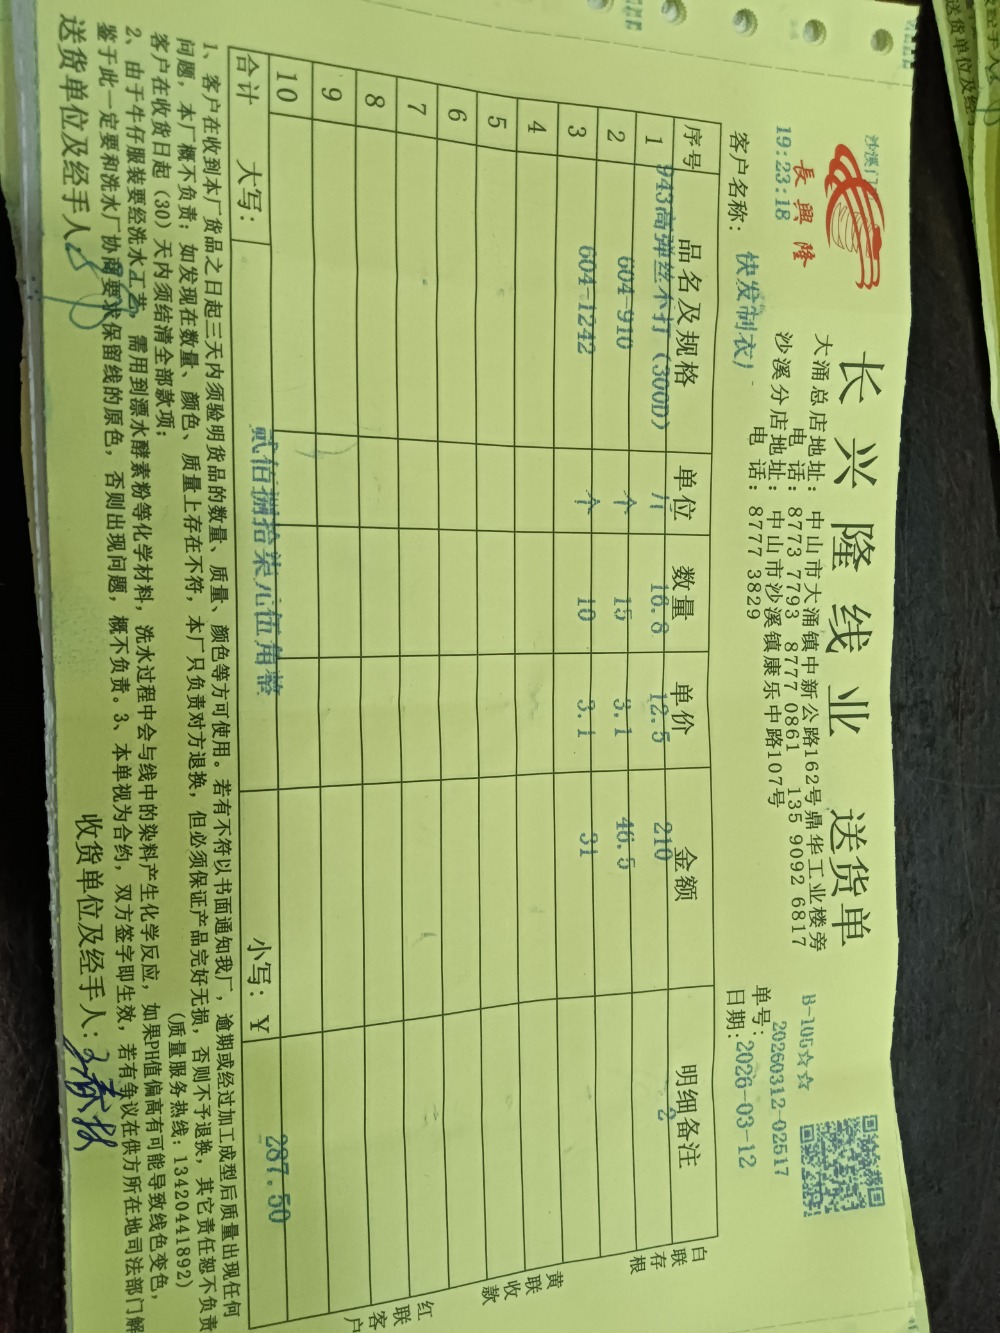 沙溪门
長興隆
19:23:18
长兴隆线业 送货单
大涌总店地址：中山市大涌镇中新公路162号鼎华工业楼旁
电 话：8773 7793 8777 0861 135 9092 6817
沙溪分店地址：中山市沙溪镇康乐中路107号
电 话：8777 3829
B-105☆☆
单号：20260312-02517
日期：2026-03-12
客户名称：快发制衣厂
序号 品名及规格 单位 数量 单价 金额 明细备注
1 943高弹丝不打（300D） 16.8 12.5 210 2
2 604-910 个 15 3.1 46.5
3 604-1242 个 10 3.1 31
4
5
6
7
8
9
10
合计 大写：贰佰捌拾柒元伍角整 小写：￥ 287.50
白联存根
黄联收款
红联客户
1、客户在收到本厂货品之日起三天内须验明货品的数量、质量、颜色等方可使用。若有不符以书面通知我厂，逾期或经过加工成型后质量出现任何
问题，本厂概不负责；如发现在数量、颜色、质量上存在不符，本厂只负责对方退换，但必须保证产品完好无损，否则不予退换，其它责任恕不负责
客户在收货日起（30）天内须结清全部款项； （质量服务热线：13420441892）
2、由于牛仔服装要经洗水工艺，需用到漂水酵素粉等化学材料，洗水过程中会与线中的染料产生化学反应，如果PH值偏高有可能导致线色变色，
鉴于此一定要和洗水厂协商要求保留线的原色，否则出现问题，概不负责。3、本单视为合约，双方签字即生效，若有争议在供方所在地司法部门解
送货单位及经手人 收货单位及经手人：
送货单位及经手